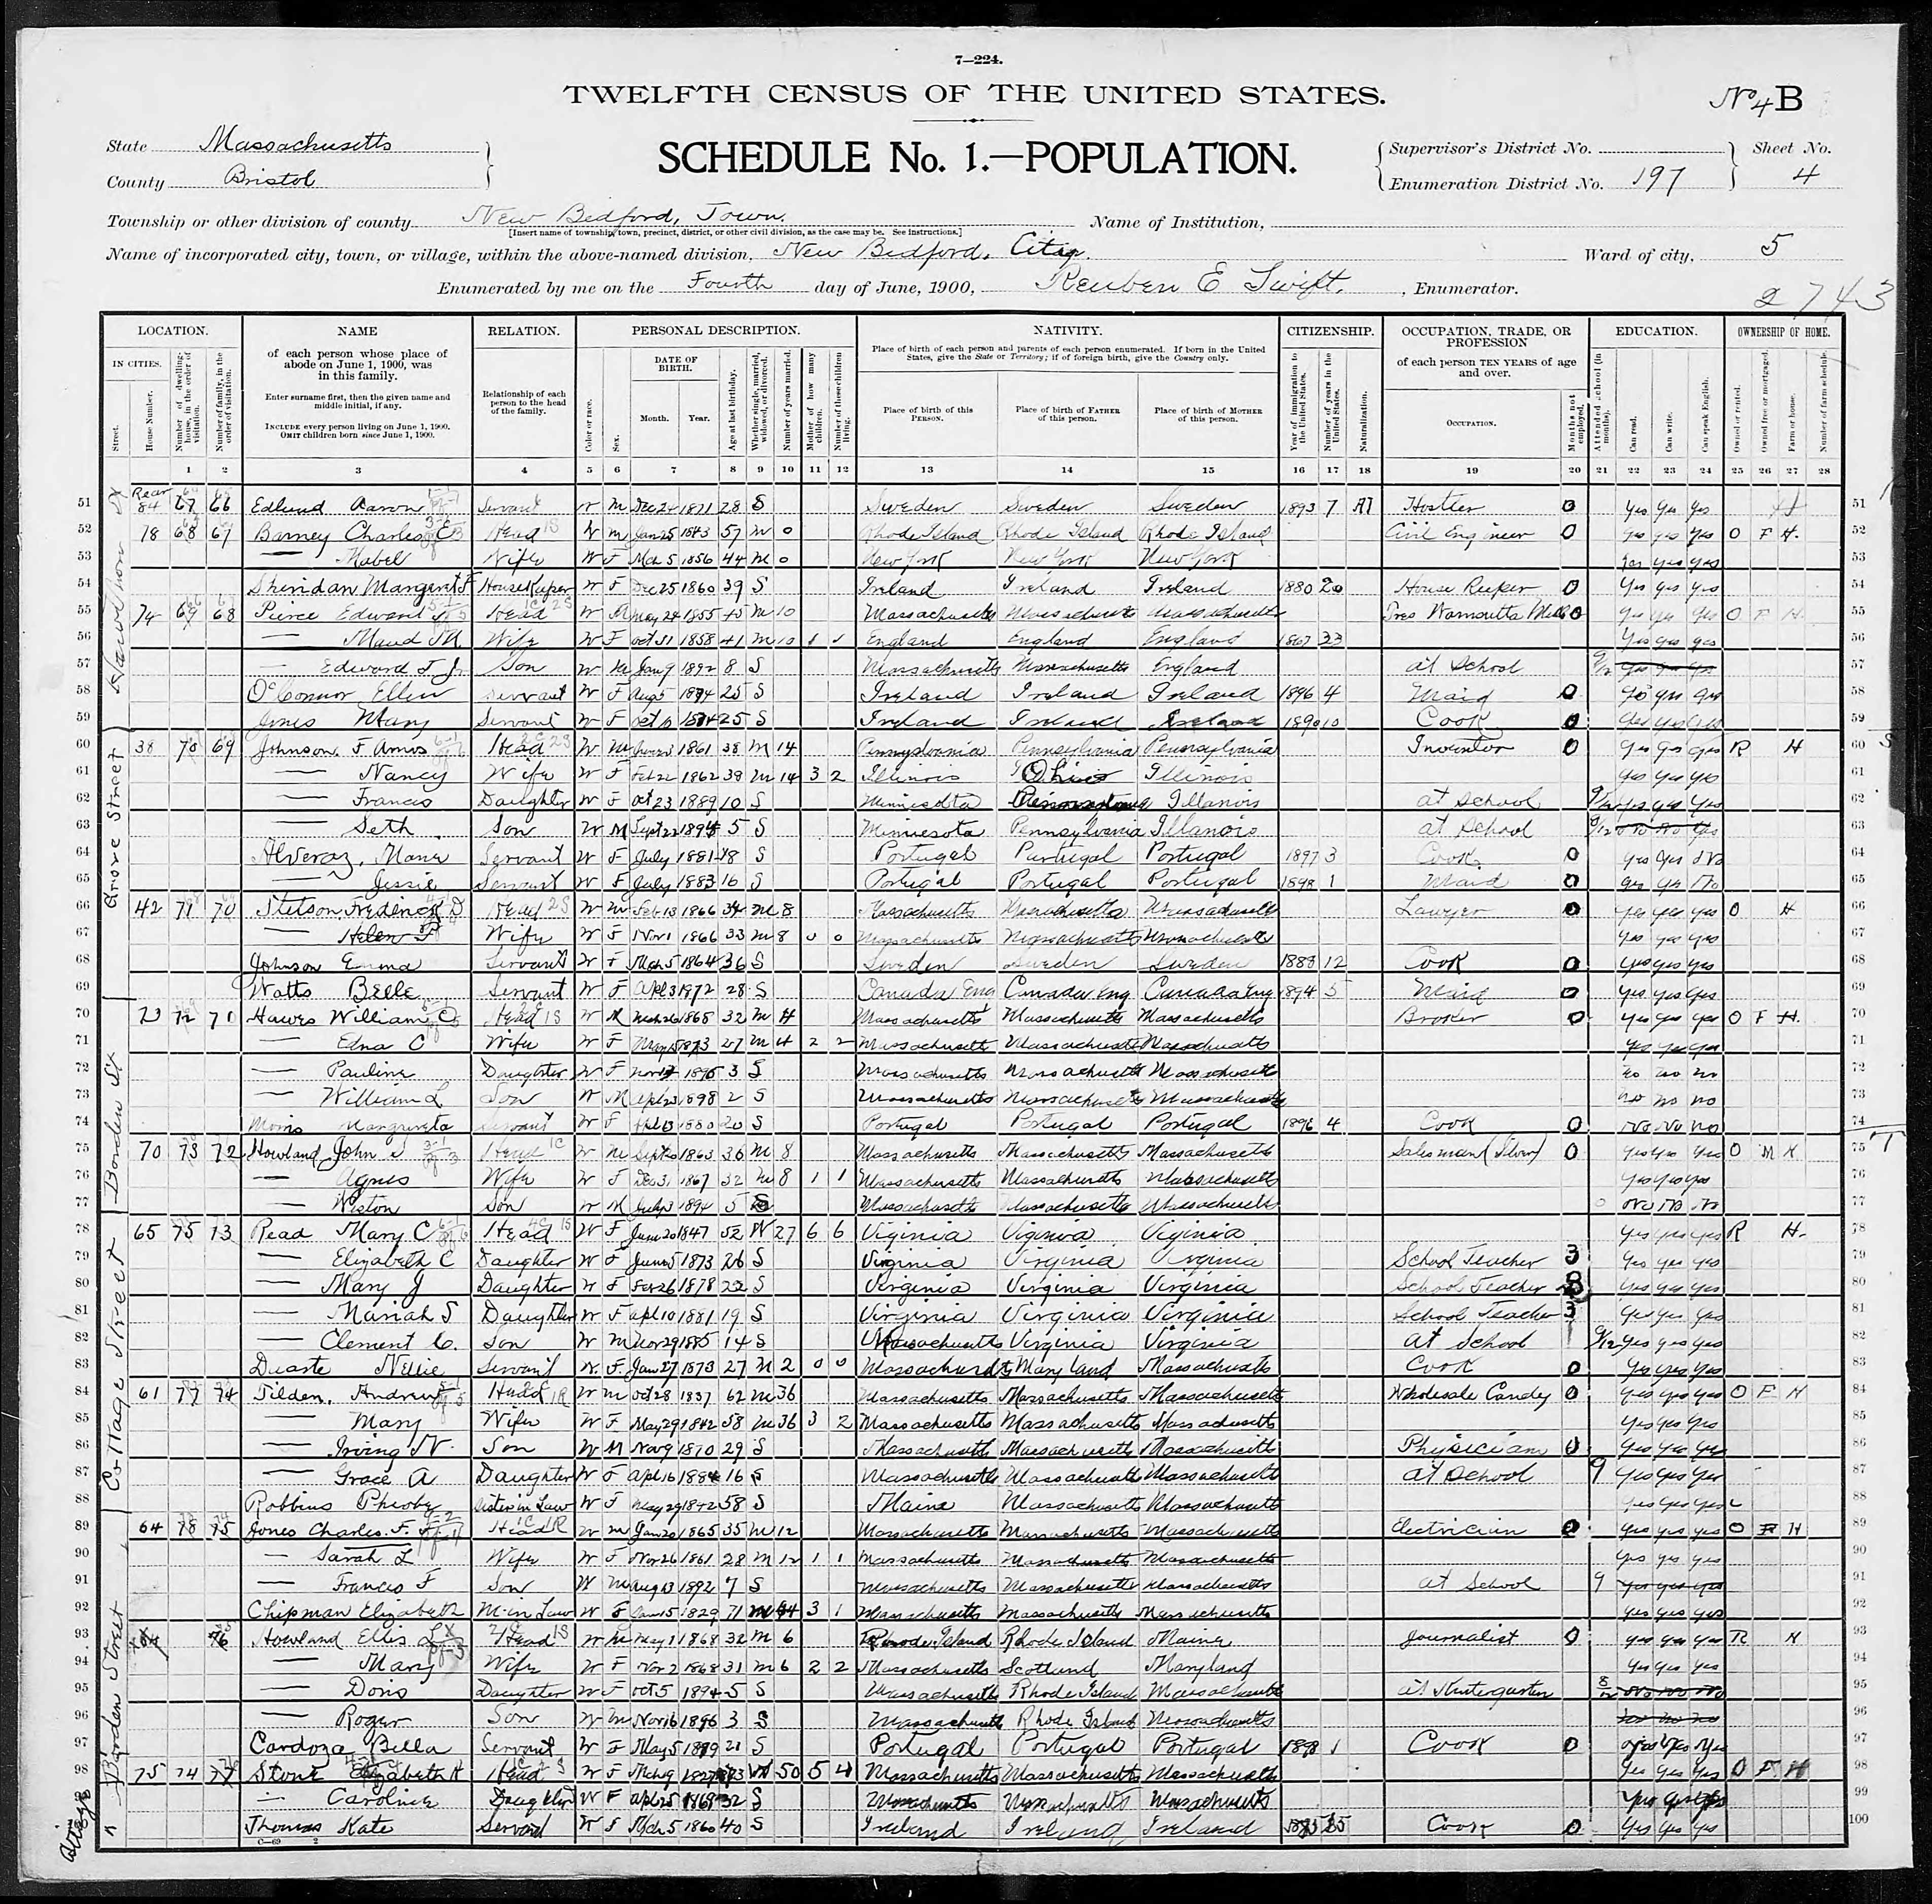 7—224.
TWELFTH CENSUS OF THE UNITED STATES.
No 4 B
State Massachusetts
County Bristol
SCHEDULE No. 1.—POPULATION.
Supervisor's District No.
Enumeration District No. 197
Sheet No. 4
Township or other division of county New Bedford, Town.
[Insert name of township, town, precinct, district, or other civil division, as the case may be. See instructions.]
Name of Institution,
Name of incorporated city, town, or village, within the above-named division, New Bedford, City.
Ward of city, 5
Enumerated by me on the Fourth day of June, 1900, Reuben E Swift, Enumerator.
2743
LOCATION. NAME RELATION. PERSONAL DESCRIPTION. NATIVITY. CITIZENSHIP. OCCUPATION, TRADE, OR PROFESSION EDUCATION. OWNERSHIP OF HOME.
IN CITIES. Street. House Number. Number of dwelling-house, in the order of visitation. Number of family, in the order of visitation.
of each person whose place of abode on June 1, 1900, was in this family.
Enter surname first, then the given name and middle initial, if any.
INCLUDE every person living on June 1, 1900. OMIT children born since June 1, 1900.
Relationship of each person to the head of the family.
Color or race. Sex. DATE OF BIRTH. Month. Year. Age at last birthday. Whether single, married, widowed, or divorced. Number of years married. Mother of how many children. Number of these children living.
Place of birth of each person and parents of each person enumerated. If born in the United States, give the State or Territory; if of foreign birth, give the Country only.
Place of birth of this PERSON. Place of birth of FATHER of this person. Place of birth of MOTHER of this person.
Year of immigration to the United States. Number of years in the United States. Naturalization.
of each person TEN YEARS of age and over.
OCCUPATION. Months not employed.
Attended school (in months). Can read. Can write. Can speak English.
Owned or rented. Owned free or mortgaged. Farm or house. Number of farm schedule.
1 2 3 4 5 6 7 8 9 10 11 12 13 14 15 16 17 18 19 20 21 22 23 24 25 26 27 28
51 Rear 84 67 66 Edlund Aaron Servant W M Dec 24 1871 28 S Sweden Sweden Sweden 1893 7 Al Hostler 0 yes yes yes 51
52 78 68 67 Barney Charles E Head W M Jan 25 1843 57 M 0 Rhode Island Rhode Island Rhode Island Civil Engineer 0 yes yes yes O F H. 52
53 — Mabel Wife W F Mch 5 1856 44 M 0 New York New York New York yes yes yes 53
54 Sheridan Margaret F Housekeeper W F Dec 25 1860 39 S Ireland Ireland Ireland 1880 20 House Keeper 0 yes yes yes 54
55 74 68 Peirce Edward Head W M May 24 1855 45 M 10 Massachusetts Massachusetts Massachusetts Tres Wamsutta Mills 0 yes yes yes O F H 55
56 — Maud M Wife W F Oct 31 1858 41 M 10 1 1 England England England 1867 33 yes yes yes 56
57 — Edward T Jr Son W M Jan 9 1892 8 S Massachusetts Massachusetts England at School 9/12 yes yes yes 57
58 O'Connor Ellen Servant W F Aug 5 1874 25 S Ireland Ireland Ireland 1896 4 Maid 0 yes yes yes 58
59 Jones Mary Servant W F Oct 10 1874 25 S Ireland Ireland Ireland 1890 10 Cook 0 yes yes yes 59
60 Grove Street 38 70 69 Johnson F Amos Head W M 1861 38 M 14 Pennsylvania Pennsylvania Pennsylvania Inventor 0 yes yes yes R H 60
61 — Nancy Wife W F Feb 22 1862 38 M 14 3 2 Illinois Ohio Illinois yes yes yes 61
62 — Francis Daughter W F Oct 23 1889 10 S Minnesota Pennsylvania Illanois at School 9/12 yes yes yes 62
63 — Seth Son W M Sept 22 1894 5 S Minnesota Pennsylvania Illanois at School 9/12 no no yes 63
64 Alveraz, Mana Servant W F July 1881 18 S Portugal Purtugal Portugal 1897 3 Cook 0 yes yes No 64
65 — Jessie Servant W F July 1883 16 S Portugal Portugal Portugal 1898 1 Maid 0 yes yes No 65
66 42 71 70 Stetson, Frederick D Head W M Feb 13 1866 34 M 8 Massachusetts Massachusetts Massachusetts Lawyer 0 yes yes yes O H 66
67 — Helen P Wife W F Nov 1 1866 33 M 8 0 0 Massachusetts Massachusetts Massachusetts yes yes yes 67
68 Johnson Emma Servant W F Mch 5 1864 36 S Sweden Sweden Sweden 1888 12 Cook 0 yes yes yes 68
69 Watts Belle Servant W F Apl 3 1872 28 S Canada Eng Canada Eng Canada Eng 1894 5 Maid 0 yes yes yes 69
70 Borden St 73 72 71 Hawes William C Head W M Mch 26 1868 32 M 4 Massachusetts Massachusetts Massachusetts Broker 0 yes yes yes O F H. 70
71 — Edna C Wife W F May 15 1873 27 M 4 2 2 Massachusetts Massachusetts Massachusetts yes yes yes 71
72 — Pauline Daughter W F Nov 1896 3 S Massachusetts Massachusetts Massachusetts no no no 72
73 — William L Son W M Apl 23 1898 2 S Massachusetts Massachusetts Massachusetts no no no 73
74 Morris Margureta Servant W F Apl 13 1880 20 S Portugal Portugal Portugal 1896 4 Cook 0 no no no 74
75 70 73 72 Howland John Head W M Sept 1863 36 M 8 Massachusetts Massachusetts Massachusetts Salesman (Silver) 0 yes yes yes O M H 75
76 — Agnes Wife W F Dec 31 1867 32 M 8 1 1 Massachusetts Massachusetts Massachusetts yes yes yes 76
77 — Weston Son W M July 3 1894 5 S Massachusetts Massachusetts Massachusetts 0 No No No 77
78 Cottage Street 65 75 73 Read Mary C Head W F June 20 1847 52 W 27 6 6 Viginia Viginia Viginia yes yes yes R H. 78
79 — Elizabeth C Daughter W F June 5 1873 26 S Virginia Virginia Virginia School Teacher 3 yes yes yes 79
80 — Mary J Daughter W F Feb 26 1878 22 S Verginia Virginia Virginia School Teacher 3 yes yes yes 80
81 — Mariah S Daughter W F Apl 10 1881 19 S Virginia Virginia Virginia School Teacher 3 yes yes yes 81
82 — Clement C. Son W M Nov 29 1885 14 S Massachusetts Virginia Virginia at School 9/12 yes yes yes 82
83 Duarte Nellie Servant W. F. Jan 27 1873 27 M 2 0 0 Massachusetts Mary land Massachusetts Cook 0 yes yes yes 83
84 61 77 74 Tilden, Andrew Head W M Oct 28 1837 62 M 36 Massachusetts Massachusetts Massachusetts Wholesale Candy 0 yes yes yes O F H 84
85 — Mary Wife W F May 29 1842 58 M 36 3 2 Massachusetts Massachusetts Massachusetts yes yes yes 85
86 — Irving N. Son W M Nov 9 1870 29 S Massachusetts Massachusetts Massachusetts Physician 0 yes yes yes 86
87 — Grace A Daughter W F Apl 16 1884 16 S Massachusetts Massachusetts Massachusetts at School 9 yes yes yes 87
88 Robbins Pheoby Sister in Law W F May 29 1842 58 S Maine Massachusetts Massachusetts yes yes yes 88
89 64 78 75 Jones Charles. F. Head W M Jan 20 1865 35 M 12 Massachusetts Massachusetts Massachusetts Electrician 0 yes yes yes O F H 89
90 — Sarah L Wife W F Nov 26 1861 28 M 12 1 1 Massachusetts Massachusetts Massachusetts yes yes yes 90
91 — Francis F Son W M Aug 13 1892 7 S Massachusetts Massachusetts Massachusetts at School 9 yes yes yes 91
92 Chipman Elizabeth M-in Law W F Jan 15 1829 71 M 44 3 1 Massachusetts Massachusetts Massachusetts yes yes yes 92
93 Borden Street 76 Howland Ellis Head W M May 1 1868 32 M 6 Rhode Island Rhode Island Maine Journalist 0 yes yes yes R H 93
94 — Mary Wife W F Nov 2 1868 31 M 6 2 2 Massachusetts Scotland Maryland yes yes yes 94
95 — Doris Daughter W F Oct 5 1894 5 S Massachusetts Rhode Island Massachusetts at Kintegarten 8/12 No No No 95
96 — Roger Son W M Nov 16 1896 3 S Massachusetts Rhode Island Massachusetts no no no 96
97 Cardoza Bella Servant W F May 5 1879 21 S Portugal Portugal Portugal 1898 1 Cook 0 yes yes yes 97
98 75 74 77 Stone Elizabeth K Head W F Mch 9 1827 73 W 50 5 4 Massachusetts Massachusetts Massachusetts yes yes yes O F H 98
99 — Caroline Daughter W F Apl 25 1868 32 S Massachusetts Massachusetts Massachusetts yes yes yes 99
100 Thomas Kate Servant W F Mch 5 1860 40 S Ireland Ireland Ireland Cook 0 yes yes yes 100
C—69 2